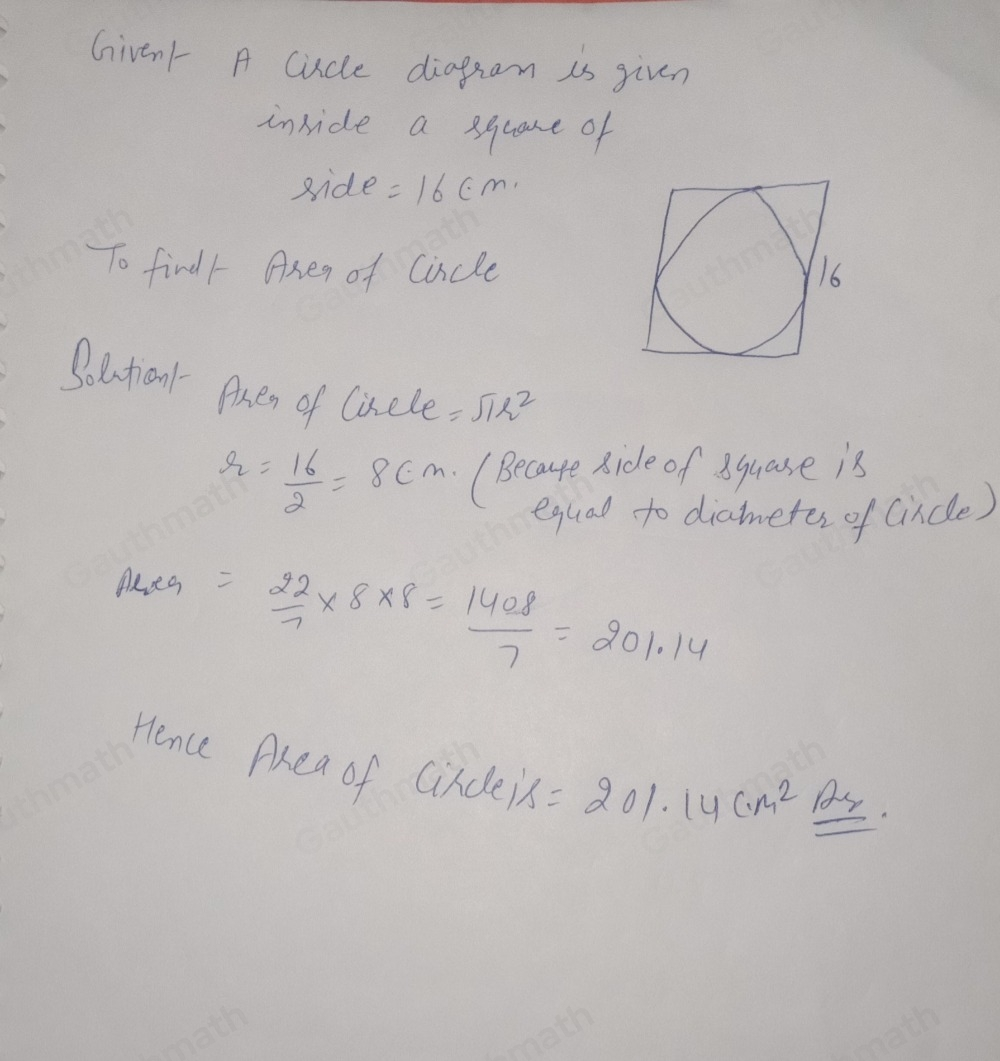 Given:- A Circle diagram is given
inside a square of
side = 16 cm.
16
To find:- Area of Circle
Solution:-
Area of Circle = πr²
r = 16/2 = 8 cm. (Because side of square is
equal to diameter of Circle)
Area = 22/7 × 8 × 8 = 1408/7 = 201.14
Hence Area of Circle is = 201.14 cm² Ans.
Gauthmath